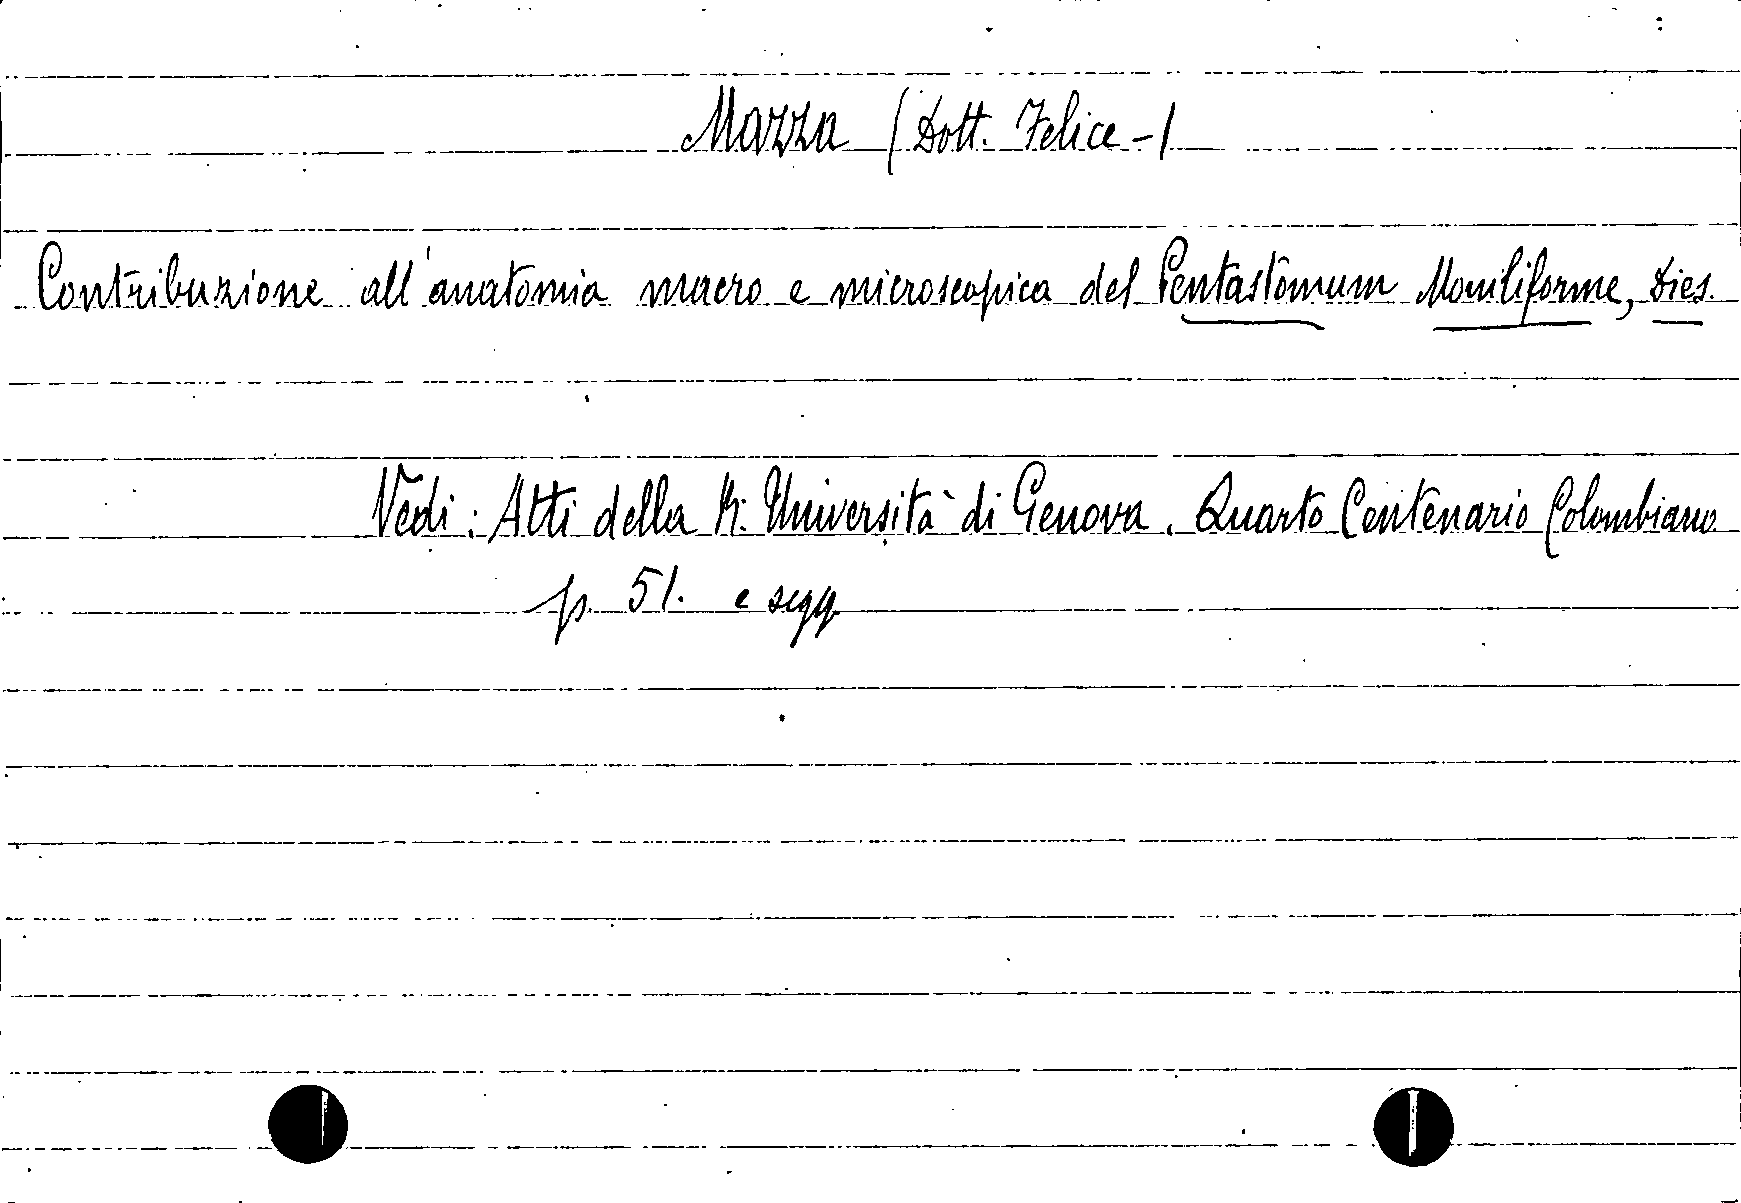 Mazza (Dott. Felice-)
Contribuzione all'anatomia macro e microscopica del Pentastomum Moniliforme, Dies.
Vedi: Atti della R. Università di Genova. Quarto Centenario Colombiano
p. 51. e segg.